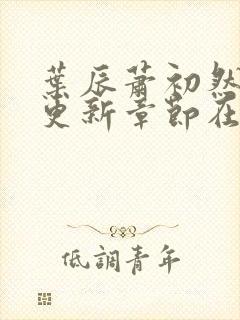 葉辰蕭初然
更新章節在
低調青年